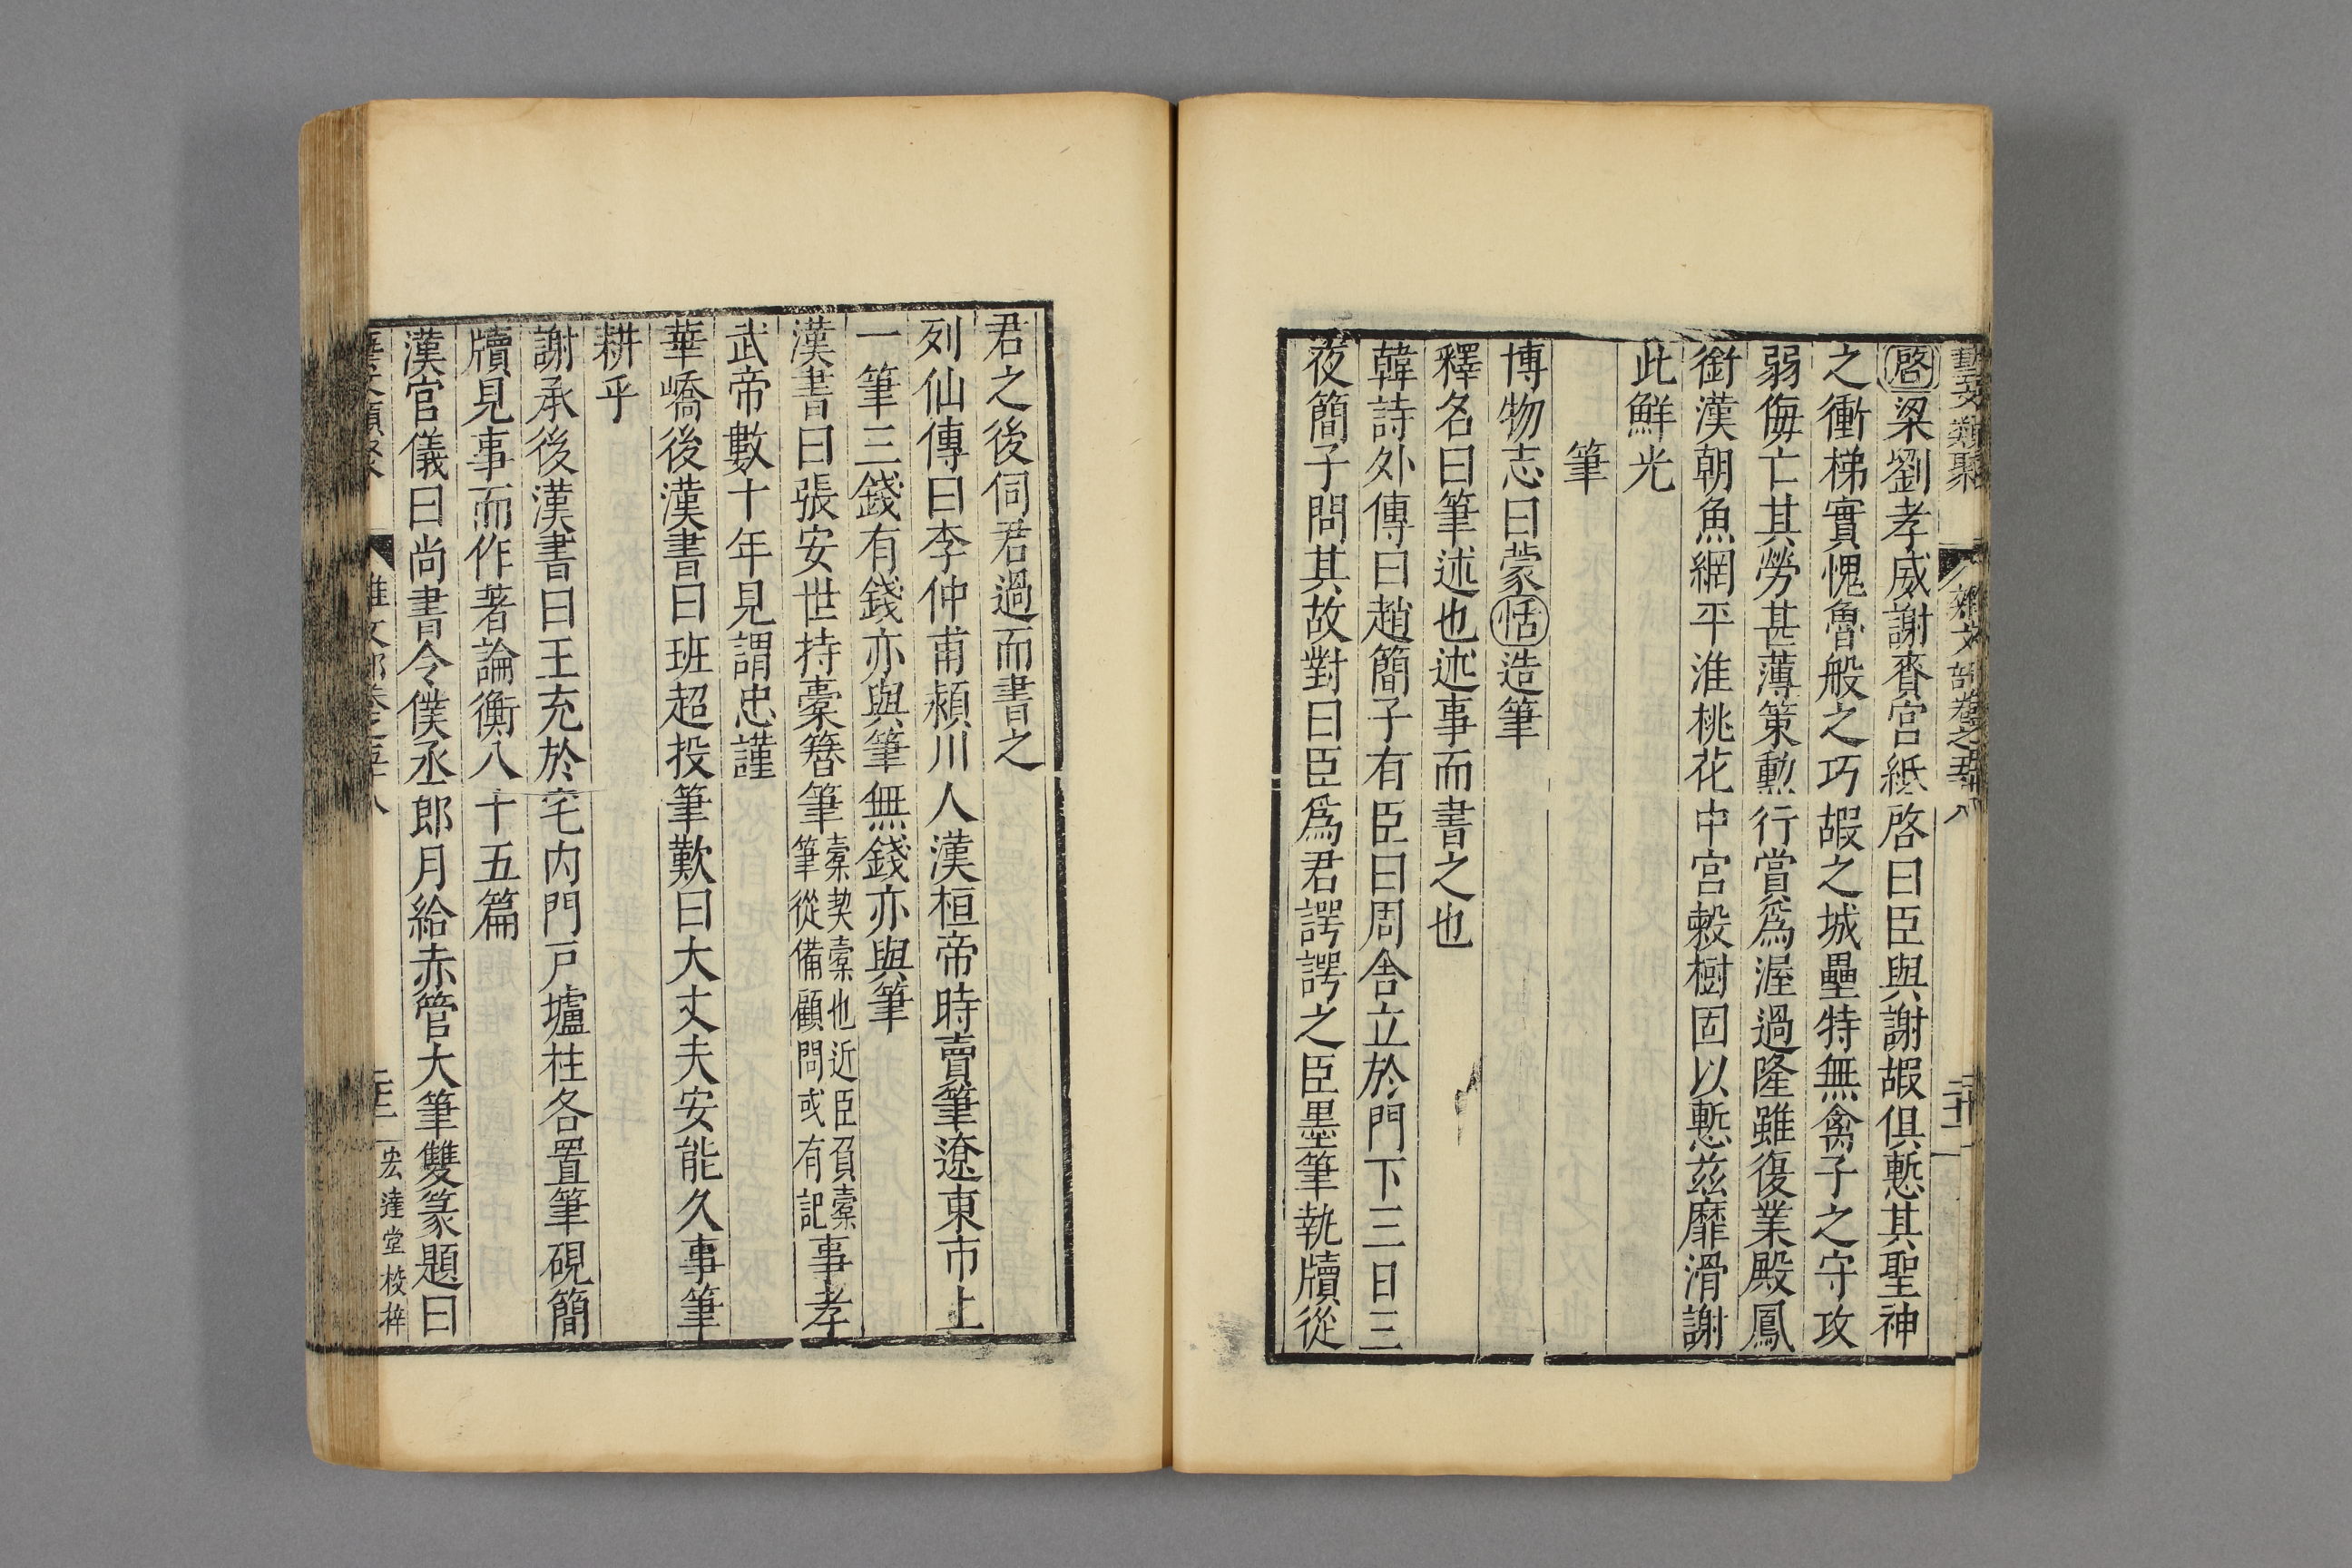 藝文類聚 雜文部卷之五十八
啓梁劉孝威謝賚宮紙啓曰臣與謝嘏俱慙其聖神
之衝梯實愧魯般之巧嘏之城壘特無禽子之守攻
弱侮亡其勞甚薄策勳行賞爲渥過隆雖復業殿鳳
銜漢朝魚網平淮桃花中宮縠樹固以慙茲靡滑謝
此鮮光
筆
博物志曰蒙恬造筆
釋名曰筆述也述事而書之也
韓詩外傳曰趙簡子有臣曰周舍立於門下三日三
夜簡子問其故對曰臣爲君諤諤之臣墨筆執牘從
君之後伺君過而書之
列仙傳曰李仲甫潁川人漢桓帝時賣筆遼東市上
一筆三錢有錢亦與筆無錢亦與筆
漢書曰張安世持橐簪筆橐契橐也近臣負橐筆從備顧問或有記事孝
武帝數十年見謂忠謹
華嶠後漢書曰班超投筆歎曰大丈夫安能久事筆
耕乎
謝承後漢書曰王充於宅内門戸壚柱各置筆硯簡
牘見事而作著論衡八十五篇
漢官儀曰尚書令僕丞郎月給赤管大筆雙篆題曰
宏達堂校梓